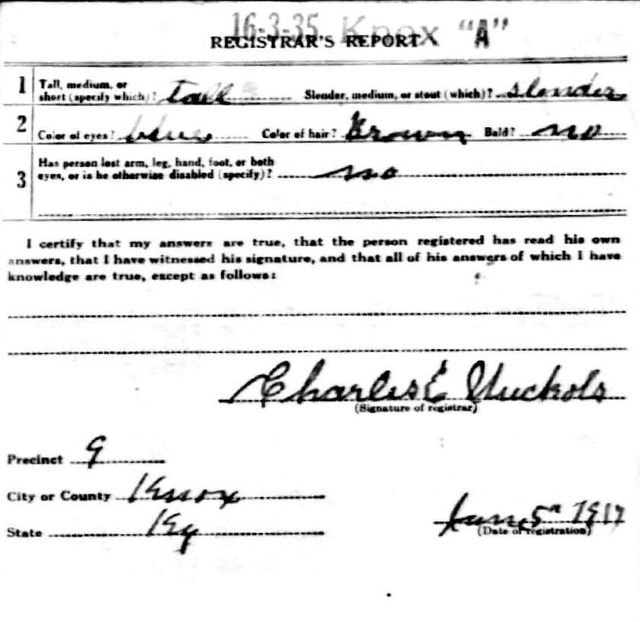 16-3-35 Knox "A"
REGISTRAR'S REPORT
1 Tall, medium, or short (specify which)? tall Slender, medium, or stout (which)? slender
2 Color of eyes? blue Color of hair? Brown Bald? no
3 Has person lost arm, leg, hand, foot, or both eyes, or is he otherwise disabled (specify)? no
I certify that my answers are true, that the person registered has read his own
answers, that I have witnessed his signature, and that all of his answers of which I have
knowledge are true, except as follows:
Charles E Nuckols
(Signature of registrar)
Precinct 9
City or County Knox
State Ky
June 5th 1917
(Date of registration)